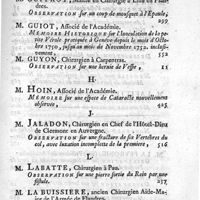 dres.
OBSERVATION sur un coup de mosquet à l'Epaule,
M. GUIOT, Associé de l'Académie.
MÉMOIRE HISTORIQUE sur l'Inoculation de la petite Vérole pratiquée à Genève depuis le mois d'Octobre 1750, jusqu'au mois de Novembre 1752. inclusivement,
M. GUYON, Chirurgien à Carpentras.
OBSERVATION sur une hernie de Vessie,
H.
M. HOIN, Associé de l'Académie.
MÉMOIRE sur une espece de Cataracte nouvellement observée,
J.
M. JALADON, Chirurgien en Chef de l'Hôtel-Dieu de Clermont en Auvergne.
OBSERVATION sur une fracture de six Vertebres du col, avec luxation incomplette de la premiere,
L.
M. LABATTE, Chirurgien à Pau.
OBSERVATION sur une pierre sortie du Rein par une fistule,
M. LA BUISSIERE, ancien Chirurgien Aide-Major de l'Armée de Flandres.